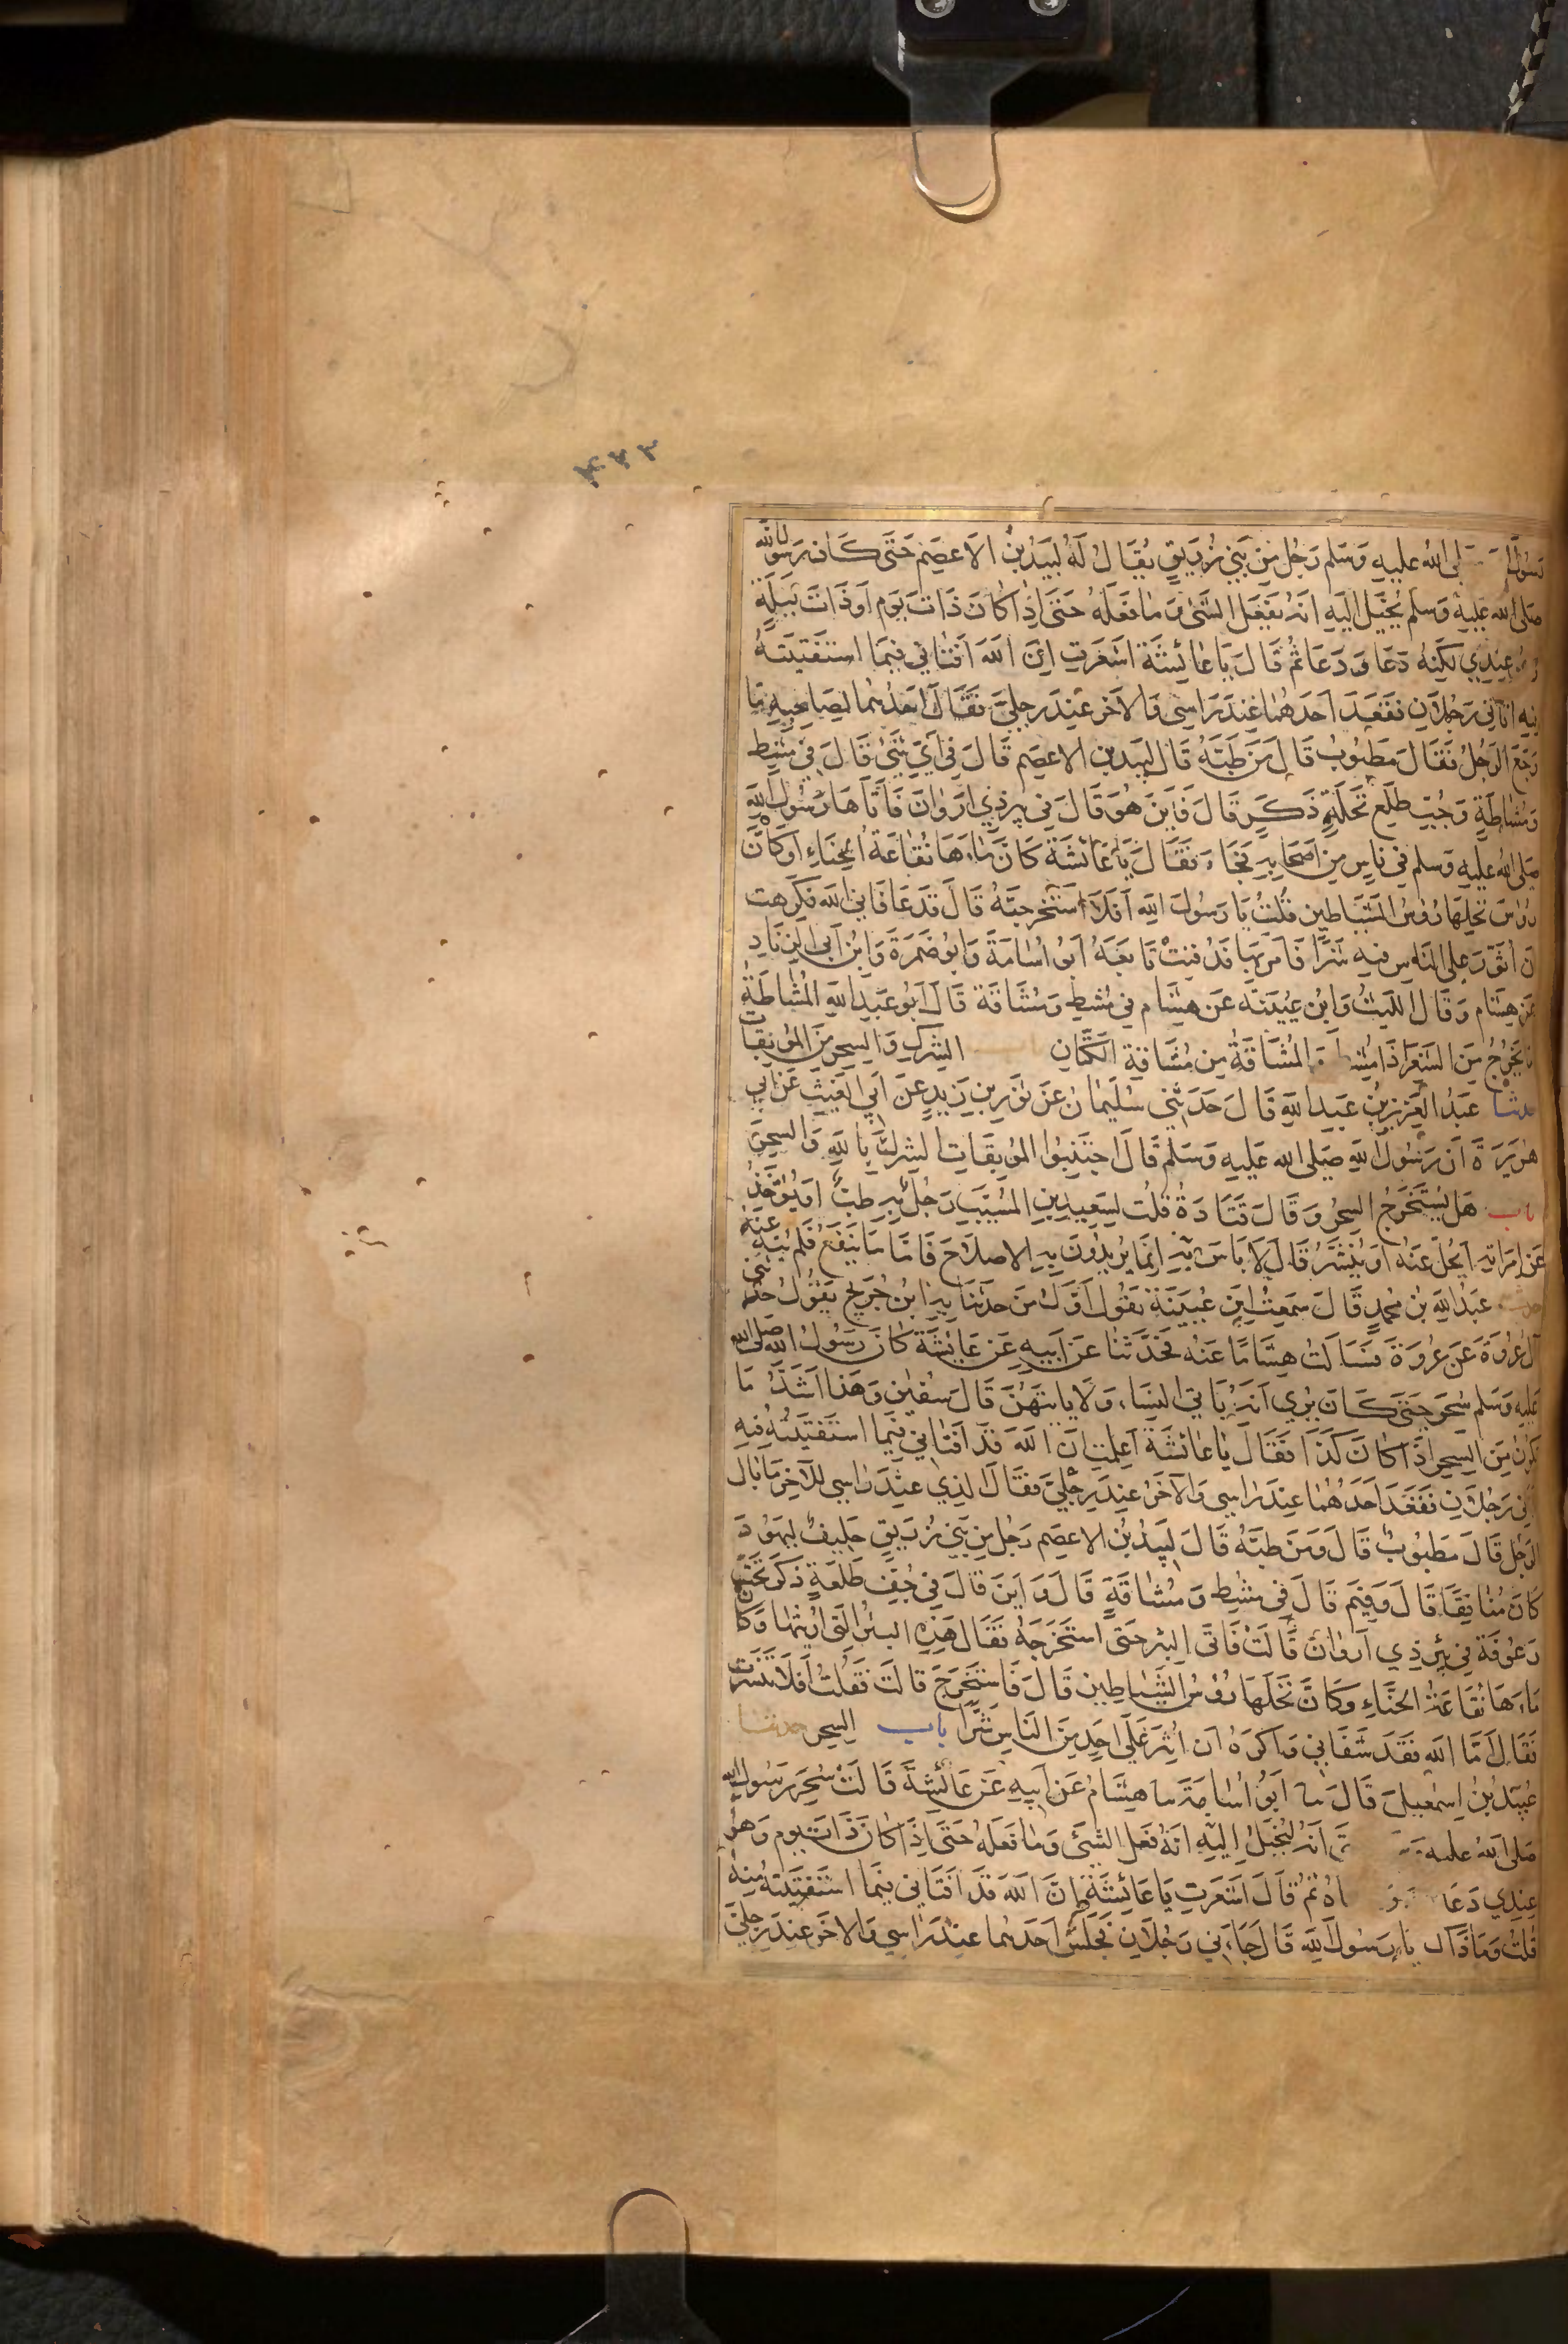 ٣٧٣
رسول الله صلى الله عليه وسلم رجل من بني زريق يقال له لبيد بن الاعصم حتى كان رسول الله
صلى الله عليه وسلم يخيل اليه انه يفعل الشئ وما فعله حتى اذا كان ذات يوم او ذات ليلة
وهو عندي لكنه دعا ودعا ثم قال يا عائشة اشعرت ان الله افتاني فيما استفتيته
فيه اتاني رجلان فقعد احدهما عند راسي والاخر عند رجلي فقال احدهما لصاحبه ما
وجع الرجل فقال مطبوب قال من طبه قال لبيد بن الاعصم قال في اي شئ قال في مشط
ومشاطة وجب طلع نخلة ذكر قال فاين هو قال في بير ذي اروان فاتاها رسول الله
صلى الله عليه وسلم في ناس من اصحابه فجاء فقال يا عائشة كان ماءها نقاعة الحناء او كان
رؤس نخلها رؤس الشياطين قلت يا رسول الله افلا استخرجته قال قد عافاني الله فكرهت
ان اثور على الناس فيه شرا فامر بها فدفنت تابعه ابو اسامة وابو ضمرة وابن ابي الزناد
عن هشام وقال الليث وابن عيينه عن هشام في مشط ومشاقة قال ابو عبد الله المشاطة
ما يخرج من الشعر اذا مشط المشاقة من مشاقة الكتان باب الشرك والسحر من الموبقات
حدثنا عبد العزيز بن عبد الله قال حدثني سليمان عن ثور بن زيد عن ابي الغيث عن ابي
هريرة ان رسول الله صلى الله عليه وسلم قال اجتنبوا الموبقات الشرك بالله والسحر
باب هل يستخرج السحر وقال قتادة قلت لسعيد بن المسيب رجل به طب او يوخذ
عن امراته ايحل عنه او ينشر قال لا باس به انما يريدون به الاصلاح فاما ما ينفع فلم ينه عنه
حدثنا عبد الله بن محمد قال سمعت ابن عيينة يقول اول من حدثنا به ابن جريج يقول حدثني
ال عروة عن عروة فسالت هشاما عنه فحدثنا عن ابيه عن عايشة كان رسول الله صلى الله
عليه وسلم سحر حتى كان يرى انه ياتي النساء ولا ياتيهن قال سفين وهذا اشد ما
يكون من السحر اذا كان كذا فقال يا عائشة اعلمت ان الله قد افتاني فيما استفتيته فيه
اتاني رجلان فقعد احدهما عند راسي والاخر عند رجلي فقال الذي عند راسي للاخر ما بال
الرجل قال مطبوب قال ومن طبه قال لبيد بن الاعصم رجل من بني زريق حليف ليهود
كان منافقا قال وفيم قال في مشط ومشاقة قال واين قال في جف طلعة ذكر تحت
رعوفة في بئر ذي اروان قالت فاتى البئر حتى استخرجه فقال هذه البئر التي اريتها وكان
ماءها نقاعة الحناء وكان نخلها رؤس الشياطين قال فاستخرج قالت فقلت افلا تنشرت
فقال اما الله فقد شفاني واكره ان اثير على احد من الناس شرا باب السحر حدثنا
عبيد بن اسمعيل قال نا ابو اسامة نا هشام عن ابيه عن عائشة قالت سحر رسول الله
صلى الله عليه انه ليخيل اليه انه فعل الشئ وما فعله حتى اذا كان ذات يوم وهو
عندي دعا ثم قال اشعرت يا عائشة ان الله قد افتاني فيما استفتيته فيه
قلت وما ذاك يا رسول الله قال جاءني رجلان فجلس احدهما عند راسي والاخر عند رجلي